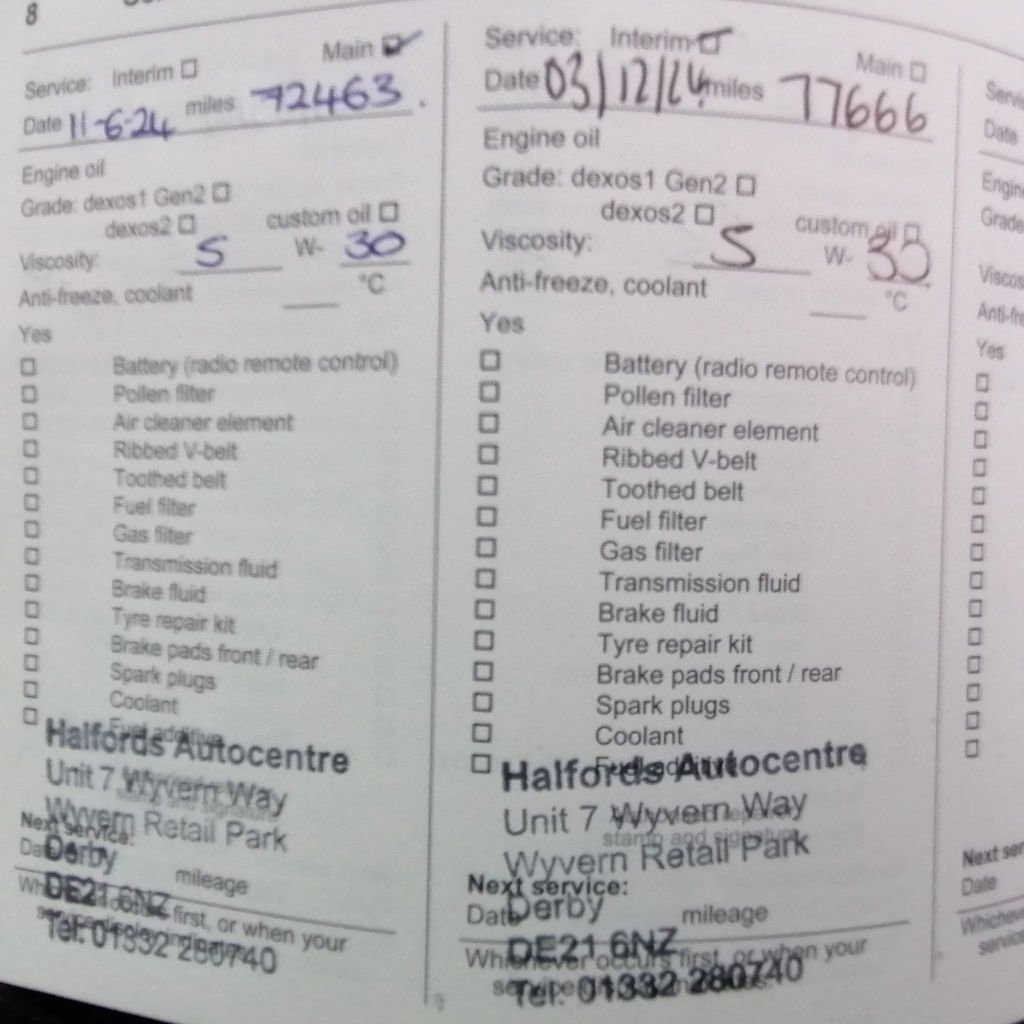 8
Service: Interim Main
Date 11-6-24 miles 72463.
Engine oil
Grade: dexos1 Gen2
dexos2 custom oil
Viscosity: 5 W- 30
Anti-freeze, coolant °C
Yes
Battery (radio remote control)
Pollen filter
Air cleaner element
Ribbed V-belt
Toothed belt
Fuel filter
Gas filter
Transmission fluid
Brake fluid
Tyre repair kit
Brake pads front / rear
Spark plugs
Coolant
Fuel additive
Halfords Autocentre
Unit 7 Wyvern Way
Wyvern Retail Park
Next service:
Derby
mileage
DE21 6NZ
first, or when your
Tel: 01332 280740
Service: Interim Main
Date 03/12/24 miles 77666
Engine oil
Grade: dexos1 Gen2
dexos2 custom oil
Viscosity: 5 W- 30
Anti-freeze, coolant °C
Yes
Battery (radio remote control)
Pollen filter
Air cleaner element
Ribbed V-belt
Toothed belt
Fuel filter
Gas filter
Transmission fluid
Brake fluid
Tyre repair kit
Brake pads front / rear
Spark plugs
Coolant
Halfords Autocentre
Unit 7 Wyvern Way
stamp and signature
Wyvern Retail Park
Next service:
Date Derby mileage
DE21 6NZ
Whichever occurs first, or when your
Tel: 01332 280740
Date
Yes
Date